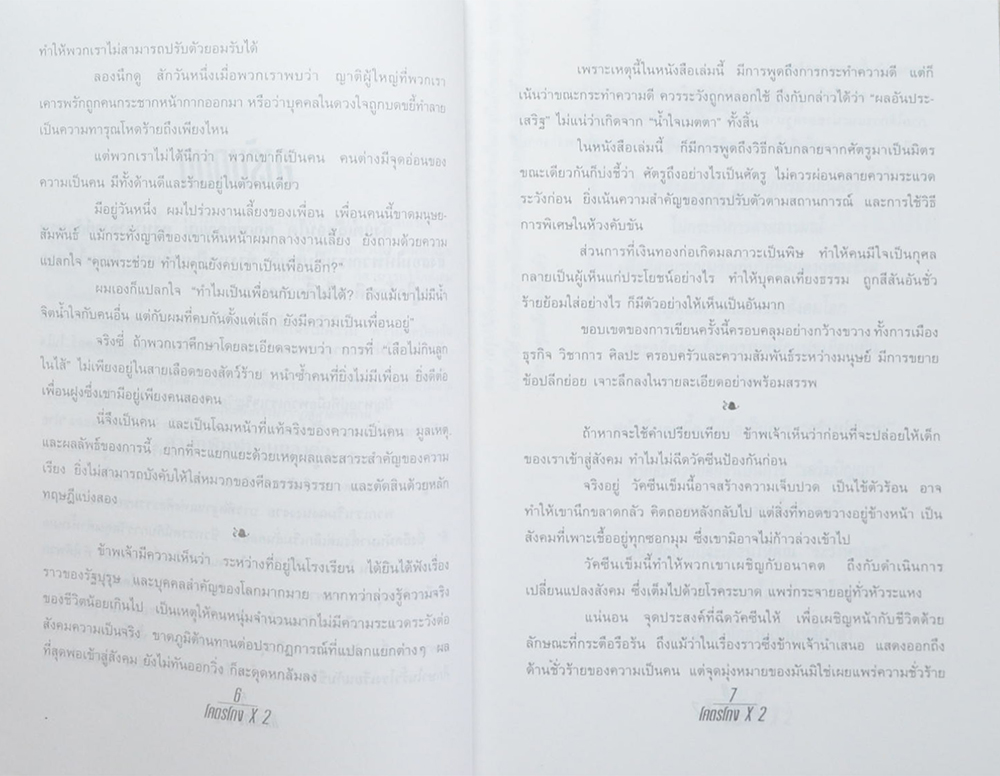 ทำให้พวกเราไม่สามารถปรับตัวยอมรับได้
ลองนึกดู สักวันหนึ่งเมื่อพวกเราพบว่า ญาติผู้ใหญ่ที่พวกเรา
เคารพรักถูกคนกระชากหน้ากากออกมา หรือว่าบุคคลในดวงใจถูกบดขยี้ทำลาย
เป็นความทารุณโหดร้ายถึงเพียงไหน
แต่พวกเราไม่ได้นึกว่า พวกเขาก็เป็นคน คนต่างมีจุดอ่อนของ
ความเป็นคน มีทั้งด้านดีและร้ายอยู่ในตัวคนเดียว
มีอยู่วันหนึ่ง ผมไปร่วมงานเลี้ยงของเพื่อน เพื่อนคนนี้ขาดมนุษย-
สัมพันธ์ แม้กระทั่งญาติของเขาเห็นหน้าผมกลางงานเลี้ยง ยังถามด้วยความ
แปลกใจ "คุณพระช่วย ทำไมคุณยังคบเขาเป็นเพื่อนอีก?"
ผมเองก็แปลกใจ "ทำไมเป็นเพื่อนกับเขาไม่ได้? ถึงแม้เขาไม่มีน้ำ
จิตน้ำใจกับคนอื่น แต่กับผมที่คบกันตั้งแต่เล็ก ยังมีความเป็นเพื่อนอยู่"
จริงซี่ ถ้าพวกเราศึกษาโดยละเอียดจะพบว่า การที่ "เสือไม่กินลูก
ในไส้" ไม่เพียงอยู่ในสายเลือดของสัตว์ร้าย หนำซ้ำคนที่ยิ่งไม่มีเพื่อน ยิ่งดีต่อ
เพื่อนฝูงซึ่งเขามีอยู่เพียงคนสองคน
นี่จึงเป็นคน และเป็นโฉมหน้าที่แท้จริงของความเป็นคน มูลเหตุ
และผลลัพธ์ของการนี้ ยากที่จะแยกแยะด้วยเหตุผลและสาระสำคัญของความ
เรียง ยิ่งไม่สามารถบังคับให้ใส่หมวกของศีลธรรมจรรยา และตัดสินด้วยหลัก
ทฤษฎีแบ่งสอง
ข้าพเจ้ามีความเห็นว่า ระหว่างที่อยู่ในโรงเรียน ได้ยินได้ฟังเรื่อง
ราวของรัฐบุรุษ และบุคคลสำคัญของโลกมากมาย หากทว่าล่วงรู้ความจริง
ของชีวิตน้อยเกินไป เป็นเหตุให้คนหนุ่มจำนวนมากไม่มีความระแวดระวังต่อ
สังคมความเป็นจริง ขาดภูมิต้านทานต่อปรากฏการณ์ที่แปลกแยกต่างๆ ผล
ที่สุดพอเข้าสู่สังคม ยังไม่ทันออกวิ่ง ก็สะดุดหกล้มลง
6
โคตรโกง X 2
เพราะเหตุนี้ในหนังสือเล่มนี้ มีการพูดถึงการกระทำความดี แต่ก็
เน้นว่าขณะกระทำความดี ควรระวังถูกหลอกใช้ ถึงกับกล่าวได้ว่า "ผลอันประ-
เสริฐ" ไม่แน่ว่าเกิดจาก "น้ำใจเมตตา" ทั้งสิ้น
ในหนังสือเล่มนี้ ก็มีการพูดถึงวิธีกลับกลายจากศัตรูมาเป็นมิตร
ขณะเดียวกันก็บ่งชี้ว่า ศัตรูถึงอย่างไรเป็นศัตรู ไม่ควรผ่อนคลายความระแวด
ระวังก่อน ยิ่งเน้นความสำคัญของการปรับตัวตามสถานการณ์ และการใช้วิธี
การพิเศษในห้วงคับขัน
ส่วนการที่เงินทองก่อเกิดมลภาวะเป็นพิษ ทำให้คนมีใจเป็นกุศล
กลายเป็นผู้เห็นแก่ประโยชน์อย่างไร ทำให้บุคคลเที่ยงธรรม ถูกสีสันอันชั่ว
ร้ายย้อมใส่อย่างไร ก็มีตัวอย่างให้เห็นเป็นอันมาก
ขอบเขตของการเขียนครั้งนี้ครอบคลุมอย่างกว้างขวาง ทั้งการเมือง
ธุรกิจ วิชาการ ศิลปะ ครอบครัวและความสัมพันธ์ระหว่างมนุษย์ มีการขยาย
ข้อปลีกย่อย เจาะลึกลงในรายละเอียดอย่างพร้อมสรรพ
ถ้าหากจะใช้คำเปรียบเทียบ ข้าพเจ้าเห็นว่าก่อนที่จะปล่อยให้เด็ก
ของเราเข้าสู่สังคม ทำไมไม่ฉีดวัคซีนป้องกันก่อน
จริงอยู่ วัคซีนเข็มนี้อาจสร้างความเจ็บปวด เป็นไข้ตัวร้อน อาจ
ทำให้เขานึกขลาดกลัว คิดถอยหลังกลับไป แต่สิ่งที่ทอดขวางอยู่ข้างหน้า เป็น
สังคมที่เพาะเชื้ออยู่ทุกซอกมุม ซึ่งเขามิอาจไม่ก้าวล่วงเข้าไป
วัคซีนเข็มนี้ทำให้พวกเขาเผชิญกับอนาคต ถึงกับดำเนินการ
เปลี่ยนแปลงสังคม ซึ่งเต็มไปด้วยโรคระบาด แพร่กระจายอยู่ทั่วหัวระแหง
แน่นอน จุดประสงค์ที่ฉีดวัคซีนให้ เพื่อเผชิญหน้ากับชีวิตด้วย
ลักษณะที่กระตือรือร้น ถึงแม้ว่าในเรื่องราวซึ่งข้าพเจ้านำเสนอ แสดงออกถึง
ด้านชั่วร้ายของความเป็นคน แต่จุดมุ่งหมายของมันมิใช่เผยแพร่ความชั่วร้าย
7
โคตรโกง X 2